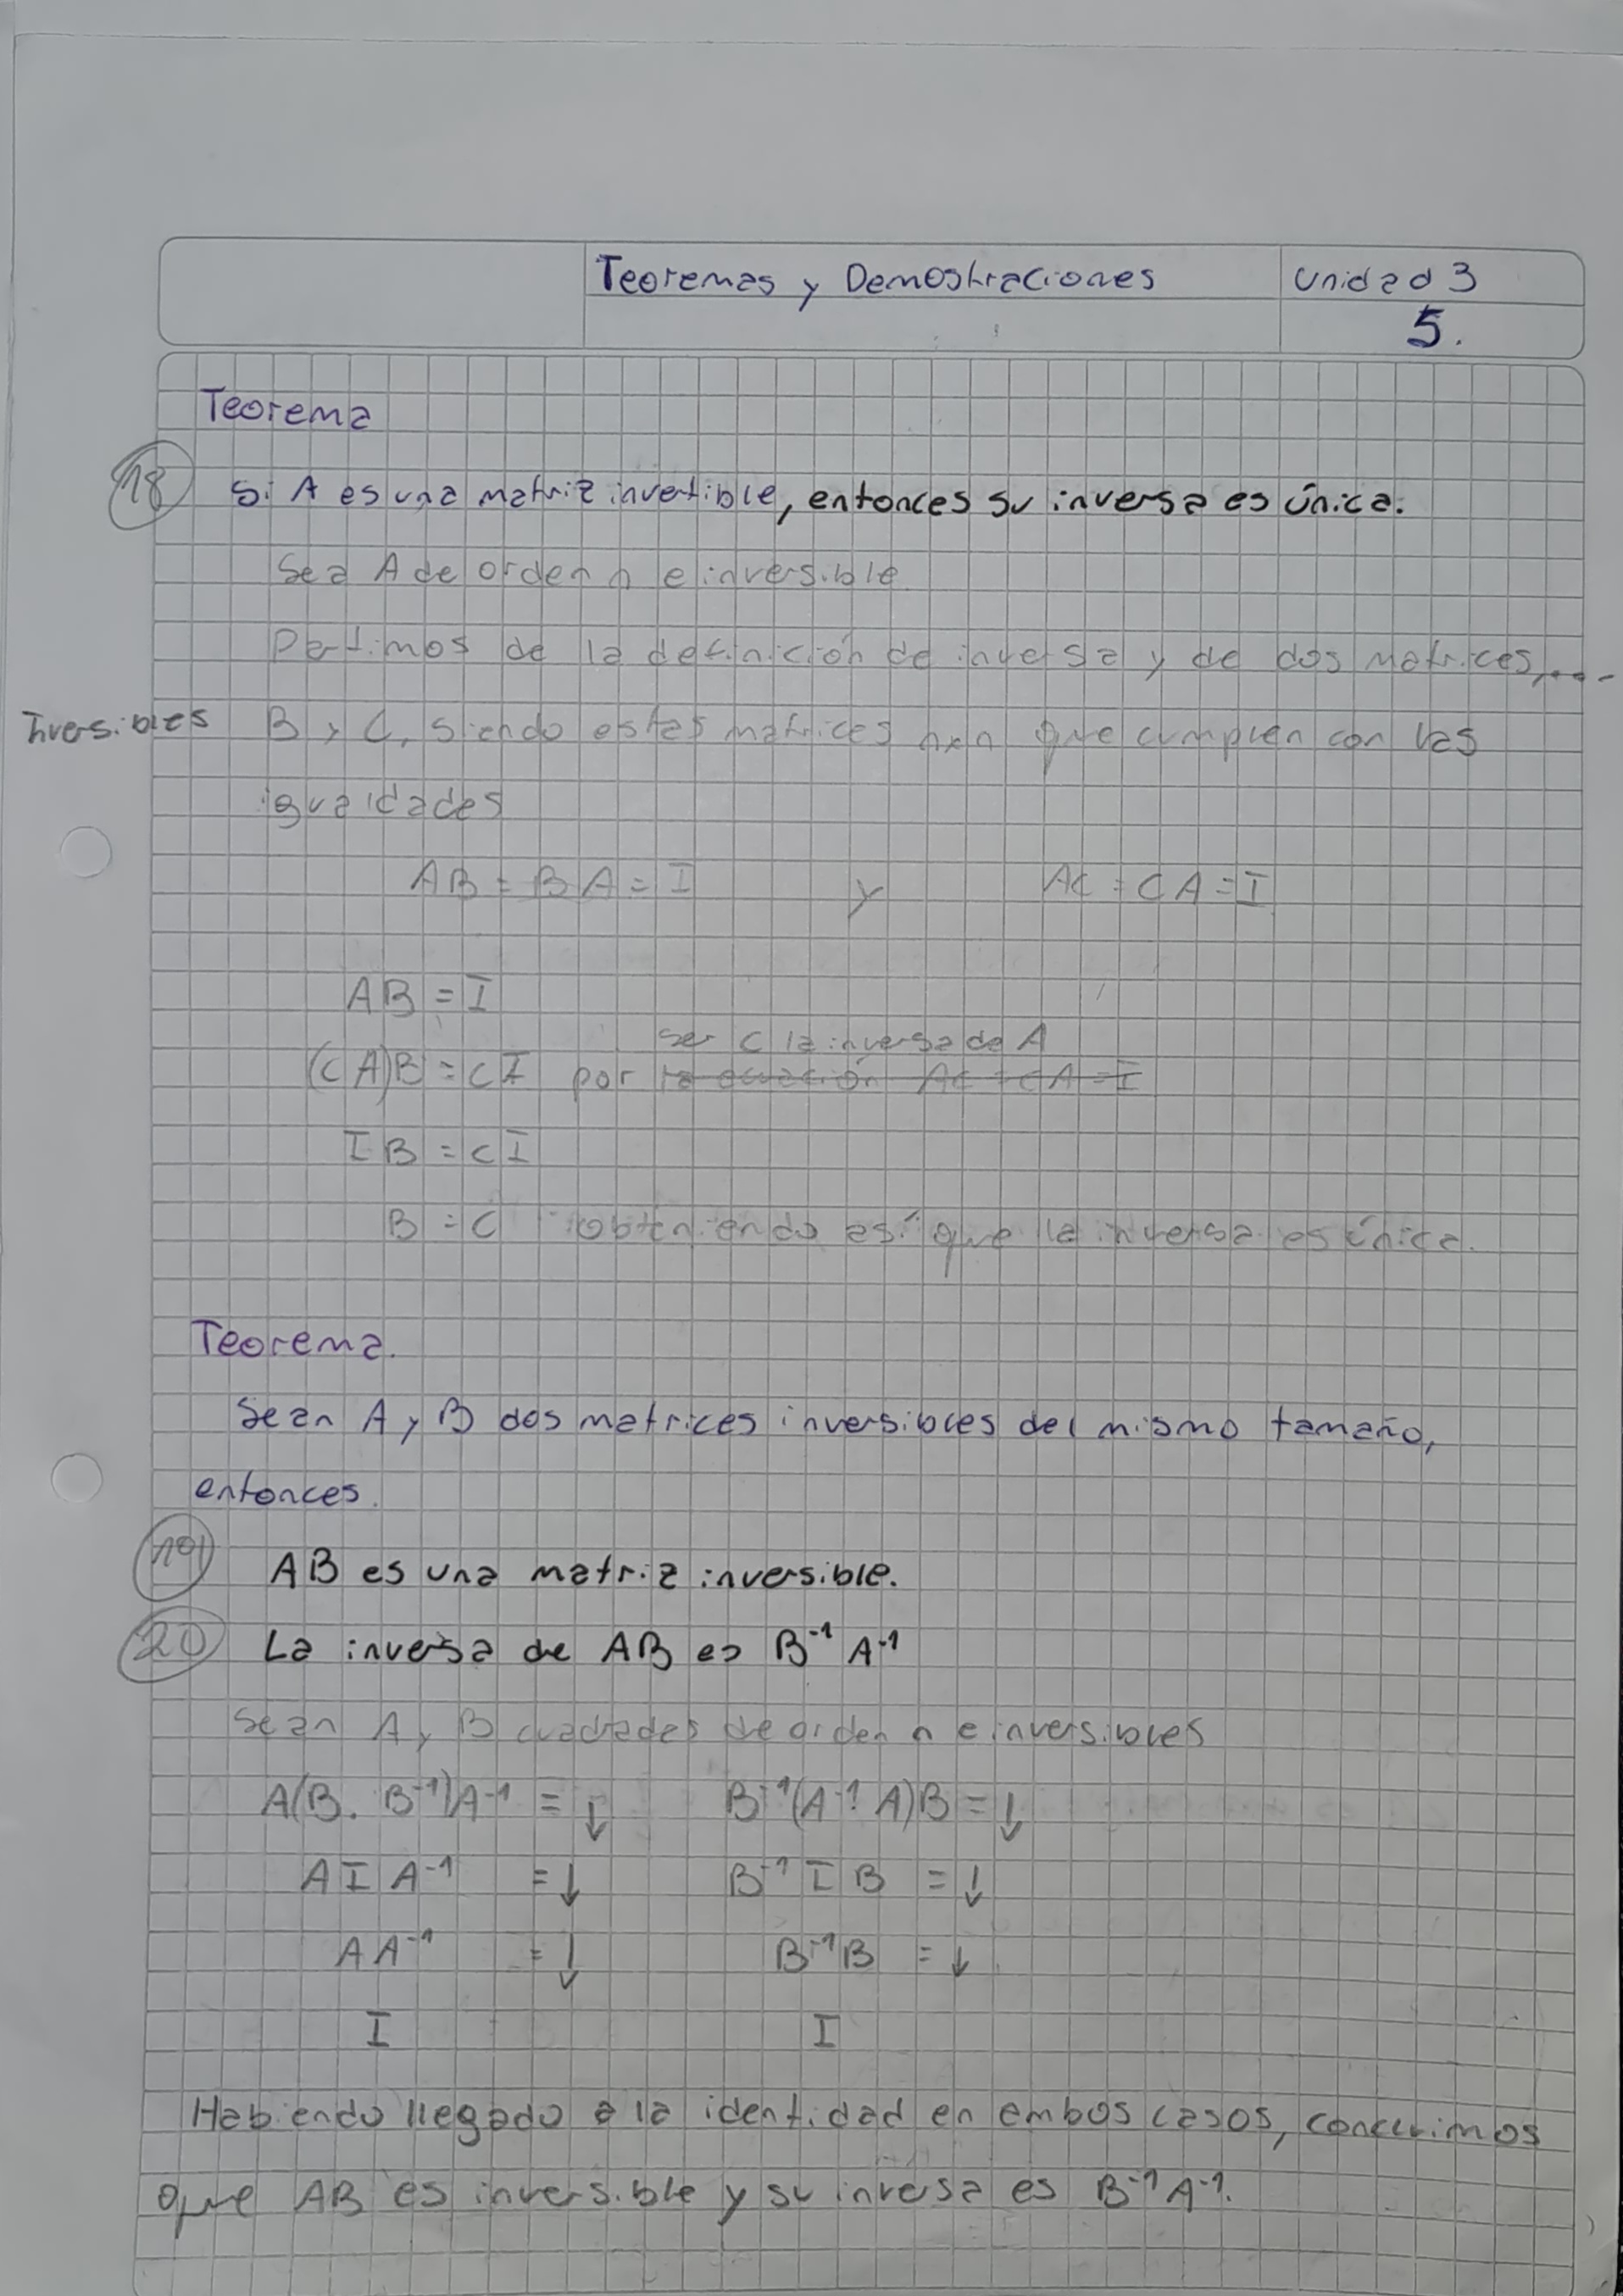 Teoremas y Demostraciones
Unidad 3
5.
Teorema
18 Si A es una matriz invertible, entonces su inversa es única.
Sea A de orden n e inversible
Partimos de la definición de inversa y de dos matrices,....
Inversibles B y C, siendo estas matrices nxn que cumplen con las
igualdades
AB = BA = I y AC = CA = I
AB = I
ser C la inversa de A
(CA)B = CI por la ecuación AC = CA = I
IB = CI
B = C obteniendo así que la inversa es única.
Teorema.
Sean A y B dos matrices inversibles del mismo tamaño,
entonces.
19 AB es una matriz inversible.
20 La inversa de AB es B⁻¹ A⁻¹
Sean A y B cuadradas de orden n e inversibles
A(B. B⁻¹)A⁻¹ = ↓ B⁻¹(A⁻¹ A)B = ↓
A I A⁻¹ = ↓ B⁻¹ I B = ↓
A A⁻¹ = ↓ B⁻¹B = ↓
I I
Habiendo llegado a la identidad en ambos casos, concluimos
que AB es inversible y su inversa es B⁻¹A⁻¹.